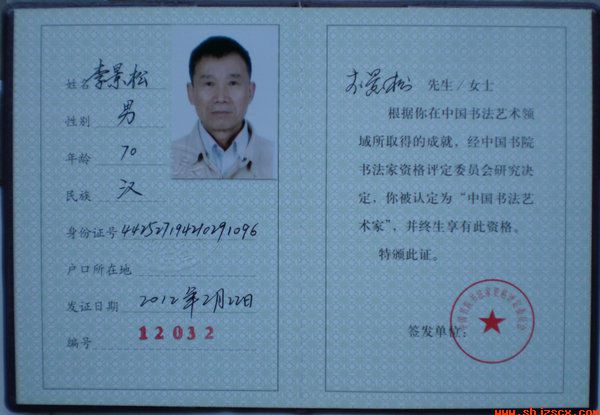 姓名 李景松
性别 男
年龄 70
民族 汉
身份证号 442527194210291096
户口所在地
发证日期 2012年2月22日
编号 12032
李景松 先生/女士
根据你在中国书法艺术领
域所取得的成就，经中国书院
书法家资格评定委员会研究决
定，你被认定为“中国书法艺
术家”，并终生享有此资格。
特颁此证。
签发单位：
中国书院书法家资格评定委员会
www.shjzscx.com